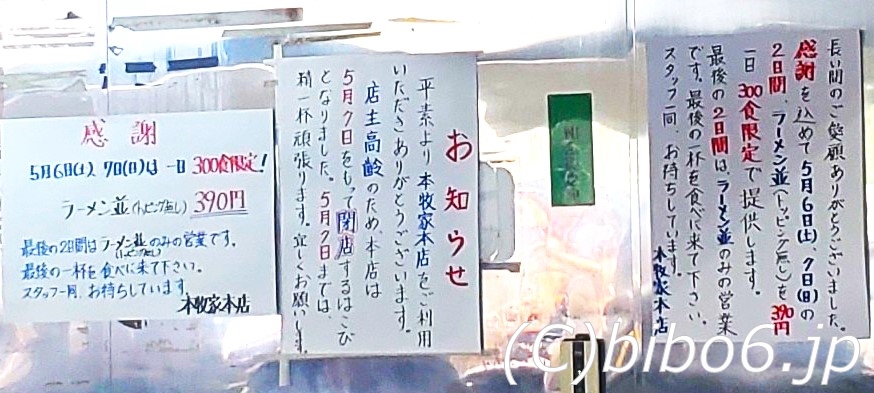 感謝
5月6日(土)、7日(日)は一日300食限定!
ラーメン並(トッピング無し)390円
最後の2日間はラーメン並のみの営業です。
(トッピング無し)
最後の一杯を食べに来て下さい。
スタッフ一同、お待ちしています。
本牧家本店
お知らせ
平素より本牧家本店をご利用
いただきありがとうございます。
店主高齢のため、本店は
5月7日をもって閉店するはこび
となりました。5月7日までは、
精一杯頑張ります。宜しくお願いします。
長い間のご愛顧ありがとうございました。
感謝を込めて5月6日(土)、7日(日)の
2日間、ラーメン並(トッピング無し)を390円
一日300食限定で提供します。
最後の2日間は、ラーメン並のみの営業
です。最後の一杯を食べに来て下さい。
スタッフ一同、お待ちしています。
本牧家本店
(C)bibo6.jp